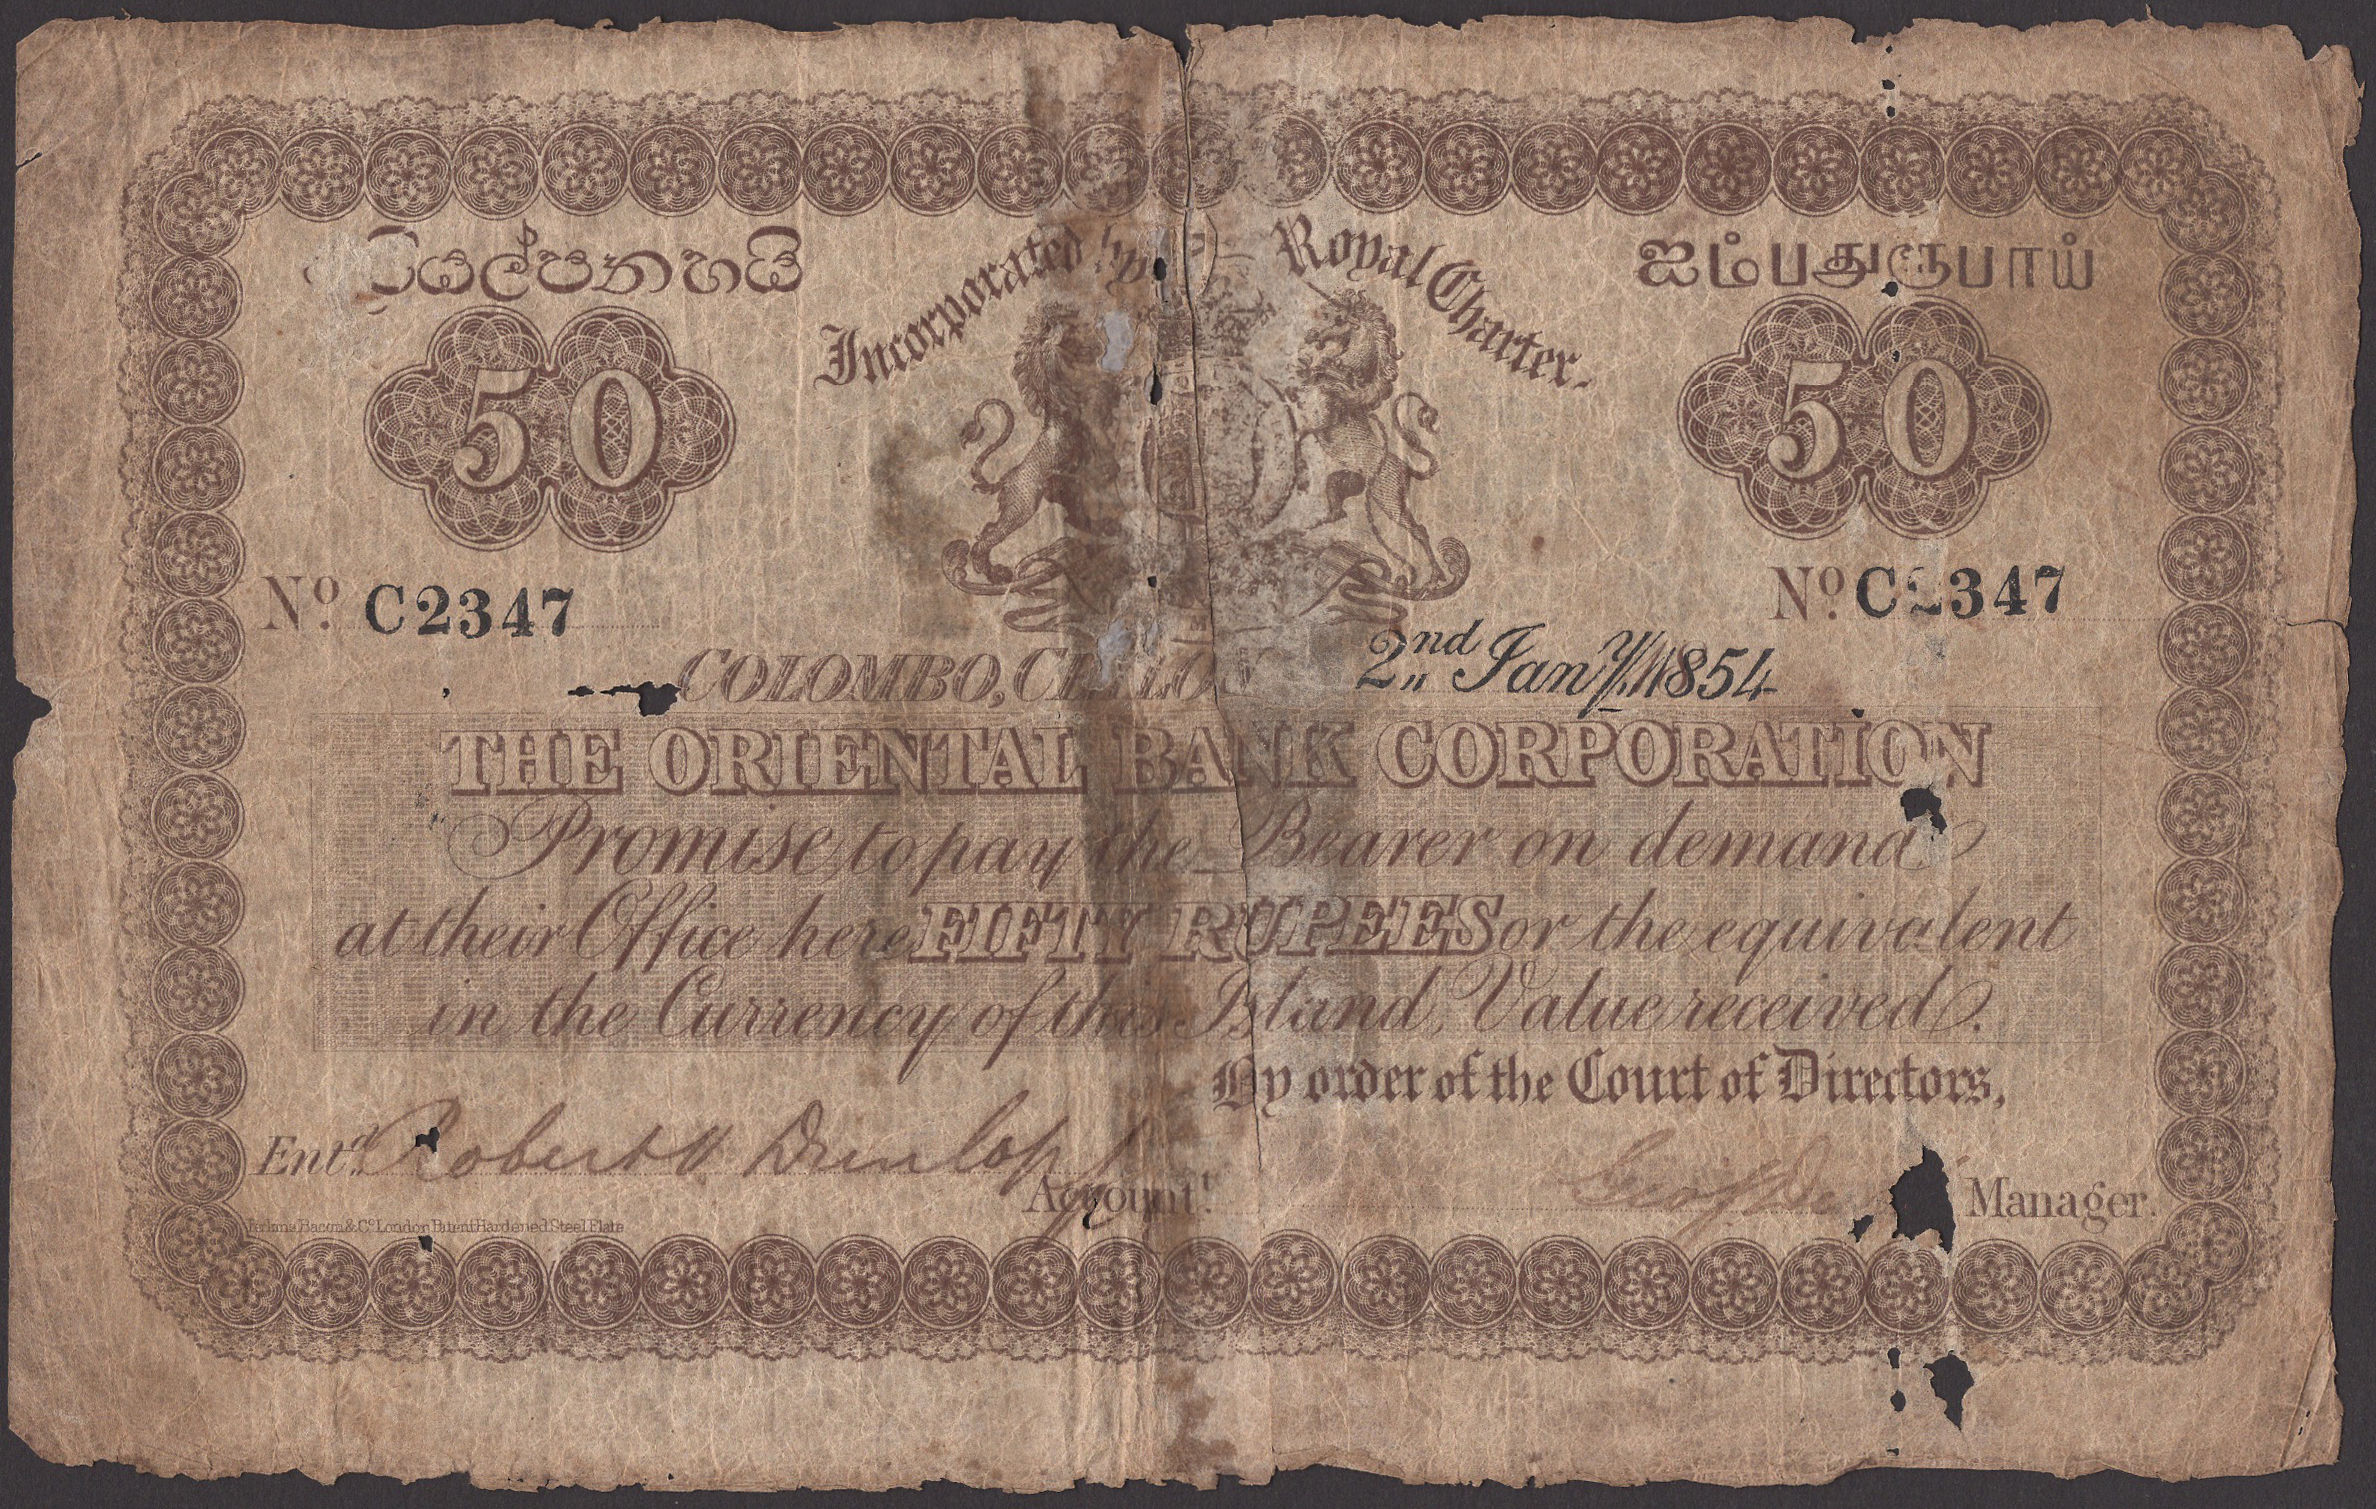 Incorporated by Royal Charter.
ஐம்பதுரூபாய்
50
50
No. C2347
No. C2347
COLOMBO, 2nd Jany. 1854
THE ORIENTAL BANK CORPORATION
Promise to pay the Bearer on demand
at their Office here FIFTY RUPEES or the equivalent
in the Currency of this Island, Value received.
By order of the Court of Directors,
Entd. Robert Dunlop
Accountt.
Manager.
Bacon & Co. London Patent Hardened Steel Plate